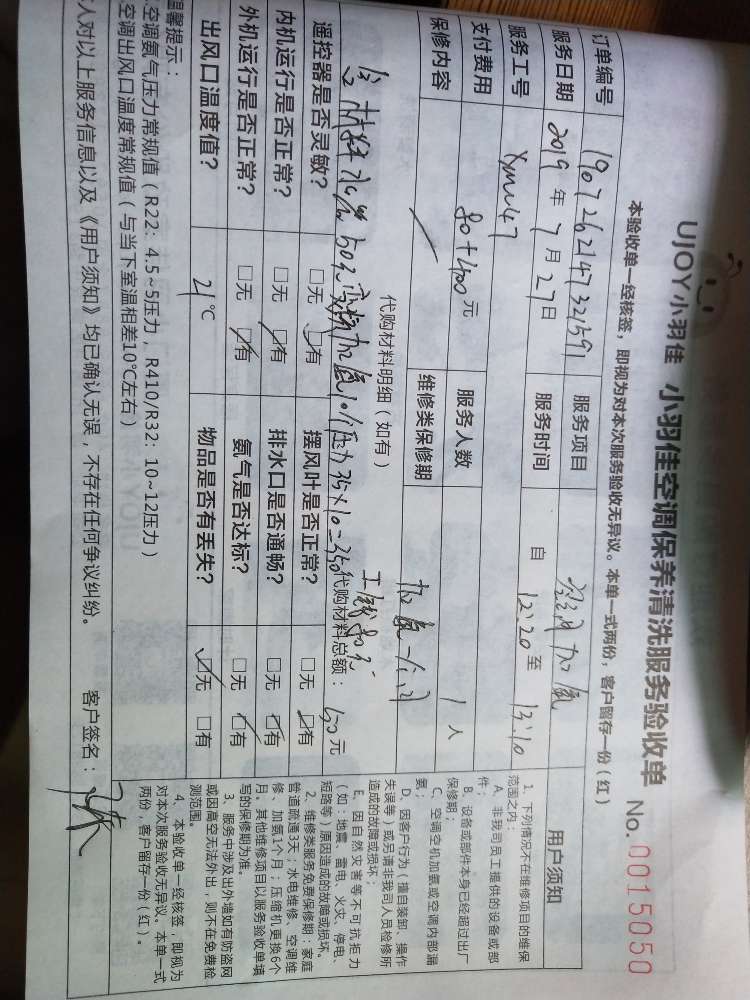 UJOY小羽佳 小羽佳空调保养清洗服务验收单 No. 0015050
本验收单一经核签，即视为对本次服务验收无异议。本单一式两份，客户留存一份（红）
订单编号 190726214732159 服务项目 加氨
服务日期 2019年7月27日 服务时间 自 12:20 至 13:10
服务工号
支付费用 80+400元 服务人数 1人
保修内容 维修类保修期 加氨一个月
代购材料明细（如有）
50元 加氨10个压力 35×10=350 工钱80元 代购材料总额： 元
遥控器是否灵敏？ □无 □有 摆风叶是否正常？ □无 □有
内机运行是否正常？ □无 □有 排水口是否通畅？ □无 □有
外机运行是否正常？ □无 □有 氨气是否达标？ □无 □有
出风口温度值？ 21℃ 物品是否有丢失？ □无 □有
温馨提示：
空调氨气压力常规值（R22：4.5~5压力，R410/R32：10~12压力）
空调出风口温度常规值（与当下室温相差10℃左右）
人对以上服务信息以及《用户须知》均已确认无误，不存在任何争议纠纷。 客户签名：
用户须知
1、下列情况不在维修项目的维保
范围之内：
A、非我司员工提供的设备或部
件；
B、设备或部件本身已经超过出厂
保修期；
C、空调空机加氨或空调内部漏
氨；
D、因客户行为（擅自装卸、操作
失误等）或另请非我司人员检修所
造成的故障或损坏；
E、因自然灾害等不可抗拒力
（如：地震、雷电、火灾、停电、
短路等）原因造成的故障或损坏。
2、维修类服务免费保修期：家庭
管道疏通3天；水电维修、空调维
修、加氨1个月；压缩机更换6个
月。其他维修项目以服务验收单填
写的保修期为准。
3、服务中涉及出外墙如有防盗网
或因真空无法外出，则不在免费检
测范围。
4、本验收单一经核签，即视为
对本次服务验收无异议。本单一式
两份，客户留存一份（红）。